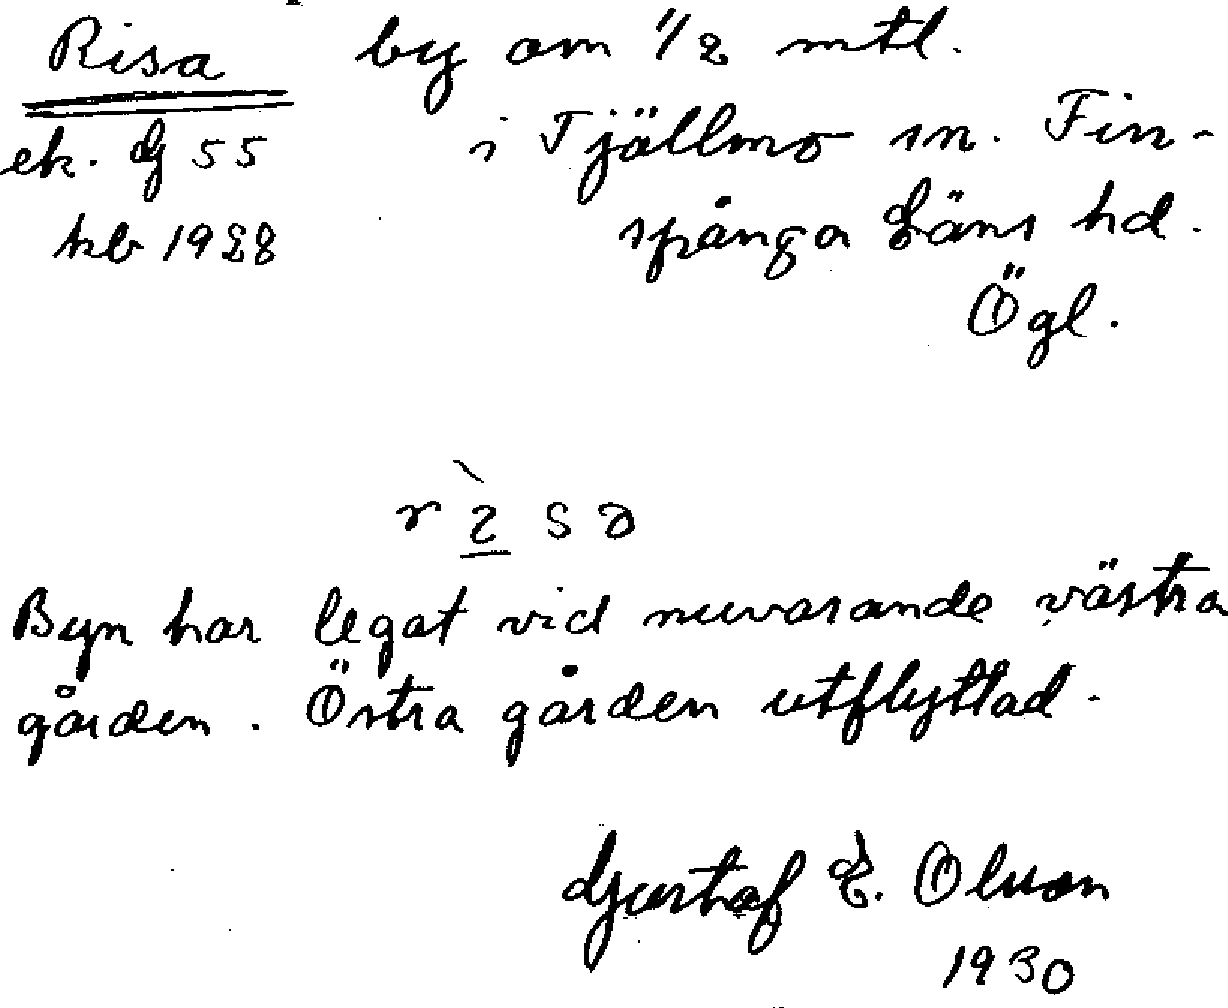 Risa by om 1/2 mtl.
ek. dj 55 i Tjällmo sn. Fin-
hb 1928 spånga Läns hd.
Ögl.
r ì s a
Byn har legat vid nuvarande västra
gården. Östra gården utflyttad.
Gustaf E. Olsson
1930